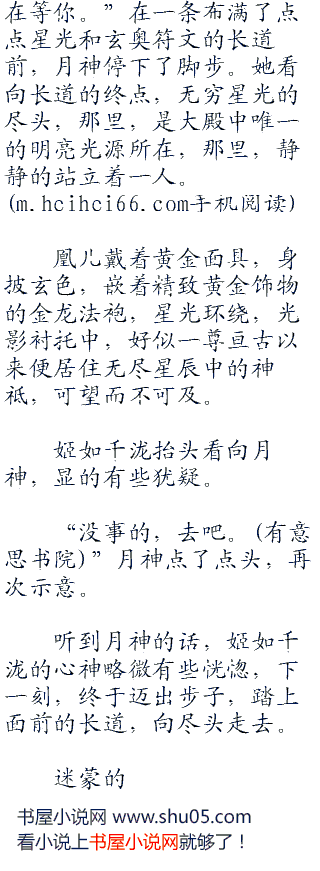 在等你。”在一条布满了点
点星光和玄奥符文的长道
前，月神停下了脚步。她看
向长道的终点，无穷星光的
尽头，那里，是大殿中唯一
的明亮光源所在，那里，静
静的站立着一人。
(m.hcihci66.com手机阅读)
凰儿戴着黄金面具，身
披玄色，嵌着精致黄金饰物
的金龙法袍，星光环绕，光
影衬托中，好似一尊亘古以
来便居住无尽星辰中的神
祗，可望而不可及。
姬如千泷抬头看向月
神，显的有些犹疑。
“没事的，去吧。(有意
思书院)”月神点了点头，再
次示意。
听到月神的话，姬如千
泷的心神略微有些恍惚，下
一刻，终于迈出步子，踏上
面前的长道，向尽头走去。
迷蒙的
书屋小说网 www.shu05.com
看小说上书屋小说网就够了！